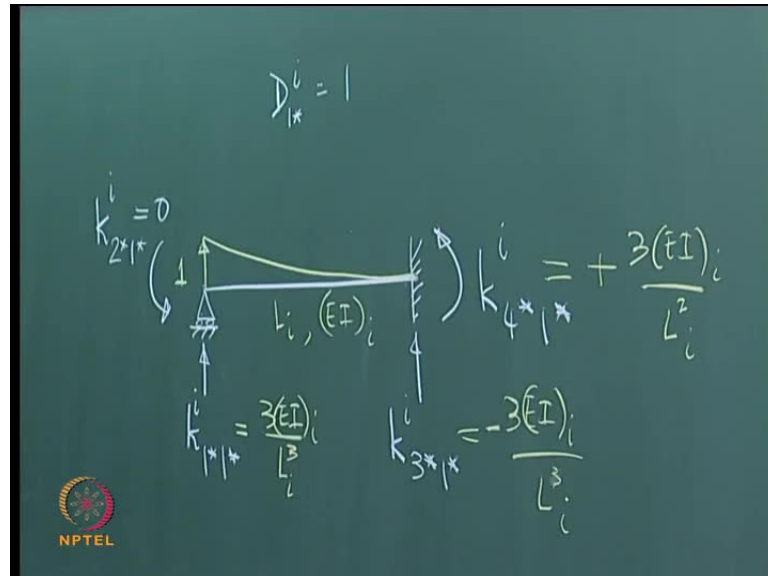 D_{1*}^i = 1
k_{2*1*}^i = 0
1
L_i, (EI)_i
k_{4*1*}^i = + \frac{3(EI)_i}{L_i^2}
k_{1*1*}^i = \frac{3(EI)_i}{L_i^3}
k_{3*1*}^i = - \frac{3(EI)_i}{L_i^3}
NPTEL